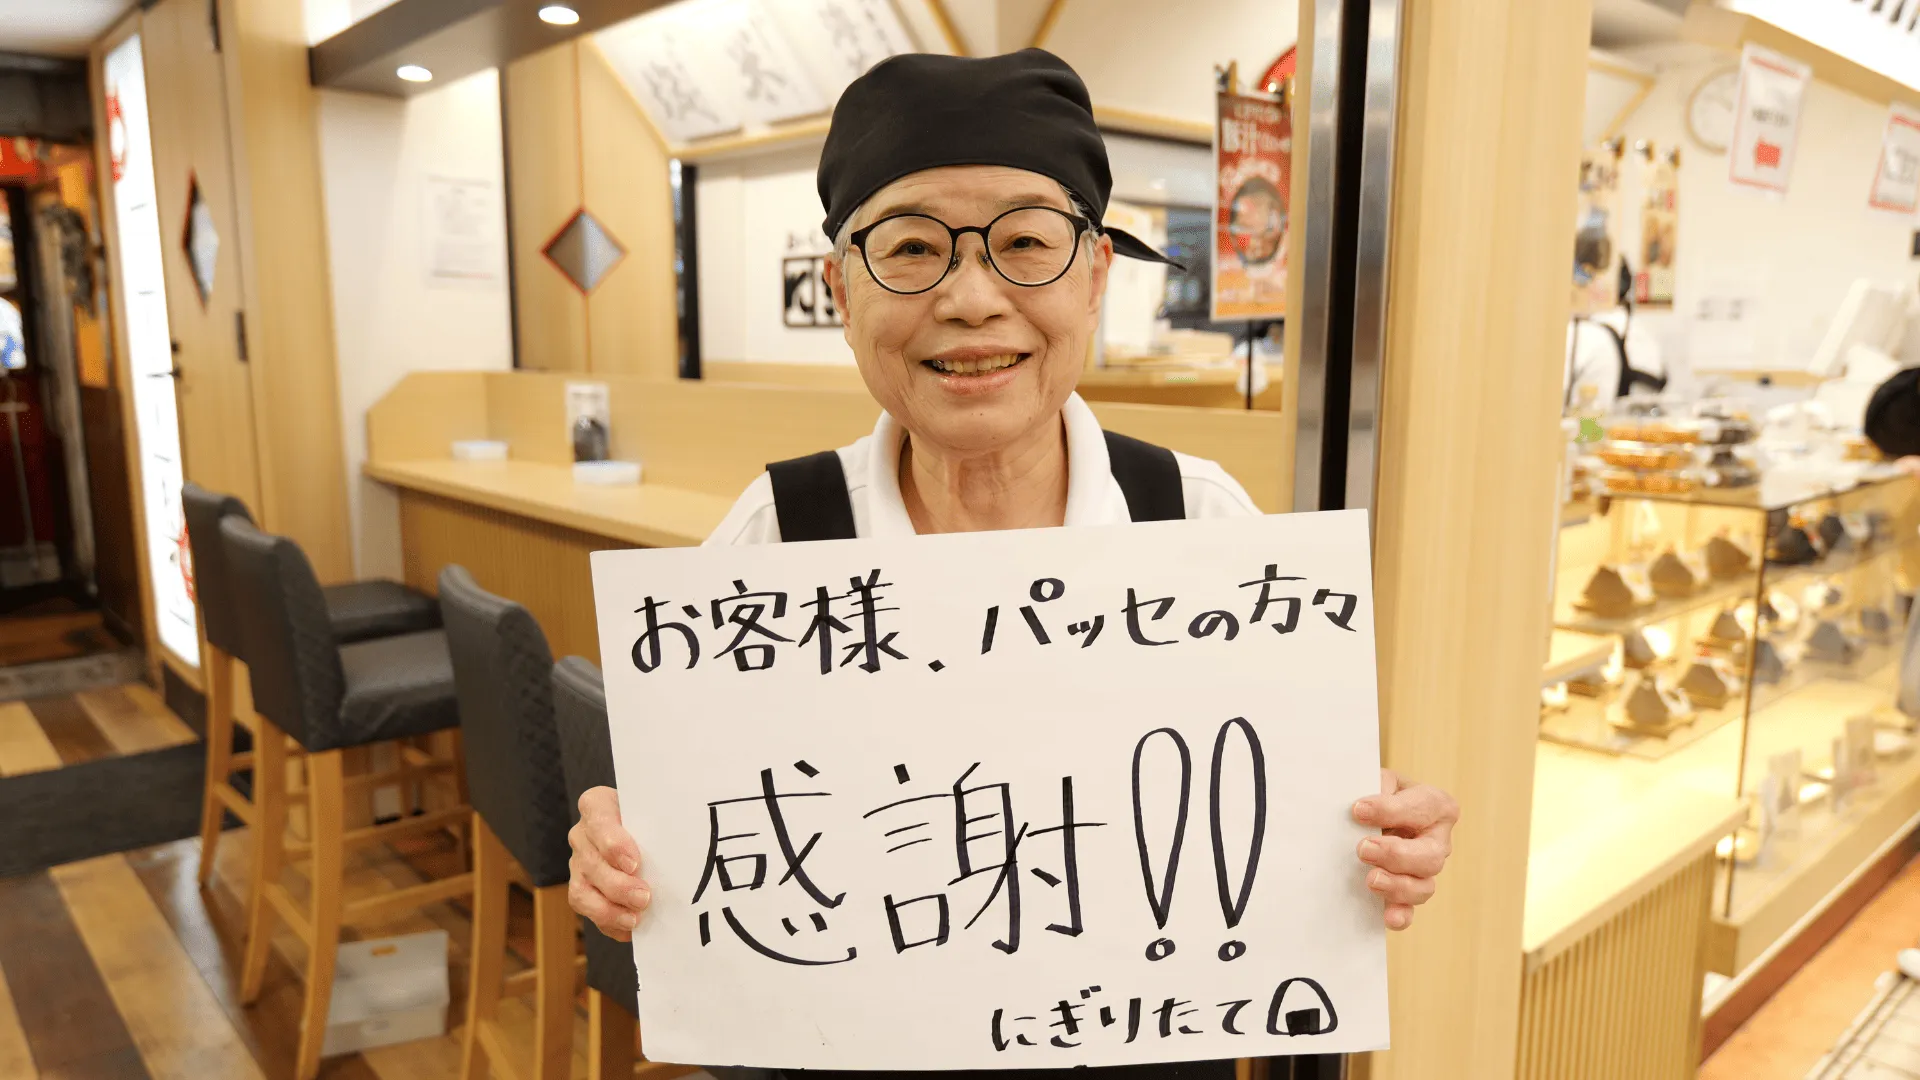 お客様、パッセの方々
感謝!!
にぎりたて